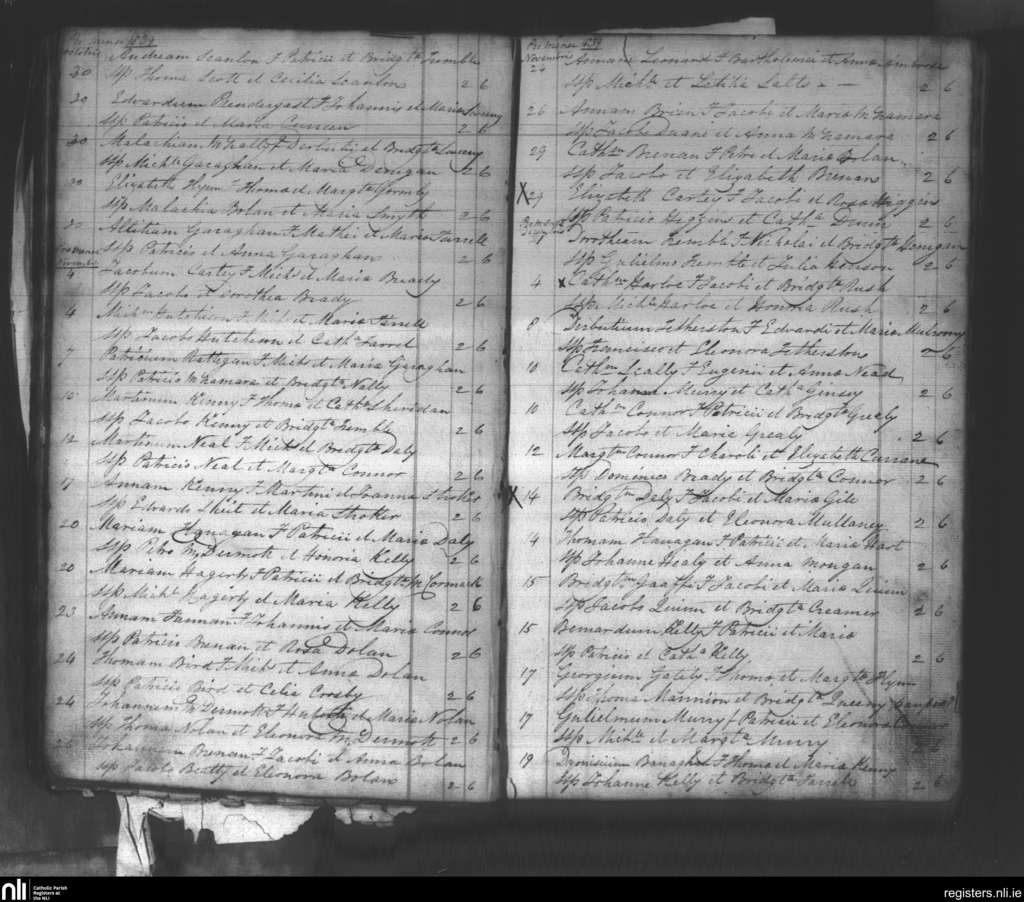 1839
30 Andream Scanlon F Patricii et Bridgta Trimble
Sp Thoma Scott et Cecilia Scanlon 2 6
30 Edvardum Prendergast F Johannis et Maria
Sp Patricis et Maria Curran 2 6
30 Malachiam McNally F Derbitii et Bridgta
Sp Michl Garaghan et Maria Denigan 2 6
30 Elizabeth Flynn F Thoma et Margta Gormly
Sp Malachia Bolan et Maria Smyth 2 6
30 Garaghan F Mathei et Maria Farrell
Sp Patricis et Anna Garaghan 2 6
4 Jacobum Carley F Michl et Maria Brady
Sp Jacobo et Dorothea Brady 2 6
4 Michm Hutchison F Michl et Maria Farrell
Sp Jacobo Hutcheson et Catha Farrel 2 6
7 Patricium Rattigan F Michl et Maria Garaghan
Sp Patricis McNamara et Bridgta Nally 2 6
10 Martinum Kenny F Thoma et Catha Sheridan
Sp Jacobo Kenny et Bridgta Trimble 2 6
12 Martinum Neal F Michl et Bridgta Daly
Sp Patricis Neal et Margta Connor 2 6
17 Annam Kenny F Martini et Joanna Stroker
Sp Edvardo et Maria Stroker 2 6
20 Mariam Hanagan F Patricii et Maria Daly
Sp Petro McDermott et Honoria Kelly 2 6
20 Mariam Hagerty F Patricii et Bridgta McCormack
Sp Michl Hagerty et Maria Kelly 2 6
23 Annam Fannan F Johannis et Maria Connor
Sp Patricis Brenan et Rosa Dolan 2 6
24 Thomam Bird F Michl et Anna Dolan
Sp Patricis Bird et Celia Crosby 2 6
24 Johannem McDermott F Huberti et Maria Nolan
Sp Thoma Nolan et Eleonora McDermott 2 6
Johannem Brenan F Jacobi et Anna Bolan
Sp Jacobo Beatty et Eleonora Bolan 2 6
1839
Novembris
24 Annam Leonard F Bartholemei et Anna Ambrose
Sp Michl et Letitia Salts 2 6
26 Annam Brien F Jacobi et Maria McNamara
Sp Jacobo Duane et Anna McNamara 2 6
29 Cathm Brenan F Petri et Maria Bolan
Sp Jacobo et Elizabeth Brenan 2 6
X 29 Elizabeth Carley F Jacobi et Rosa Higgins
Sp Patricio Higgins et Catha 2 6
Dorotheam Trimble F Nicholai et Bridgta Denigan
Sp Gulielmo Trimble et Julia Henson 2 6
4 x Cathm Harloe F Jacobi et Bridgta Rush
Sp Michl Harloe et Honoria Rush 2 6
8 Derbitium Fetherston F Edvardi et Maria Mulvany
Sp Francisco et Eleonora Fetherston 2 6
10 Cathm Scally F Eugenii et Anna Nead
Sp Johanne Murry et Catha Ginsey 2 6
10 Cathm Connor F Patricii et Bridgta Grealy
Sp Jacobo et Maria Grealy 2 6
12 Margtm Connor F Charoli et Elizabeth Currane
Sp Dominico Beady et Bridgta Connor 2 6
X 14 Bridgtm Daly F Jacobi et Maria Gill
Sp Patricio Daly et Eleonora Mullaney 2 6
14 Thomam Hanagan F Patricii et Maria Hart
Sp Johanne Healy et Anna Mongan 2 6
15 Bridgtm F Jacobi et Maria
Sp Jacobo et Bridgta Creamer 2 6
15 Bernardum Kelly F Patricii et Maria
Sp Patricis et Catha Kelly 2 6
17 Georgium Gately F Thoma et Margta Flynn
Sp Thoma Mannion et Bridgta
17 Gulielmum Murry F Patricii et Eleonora
Sp Michl et Margta Murry
19 Dionisium Banaghan F Thoma et Maria Kenny
Sp Johanne Kelly et Bridgta Farrell 2 6
nli Catholic Parish
Registers at
the NLI
registers.nli.ie